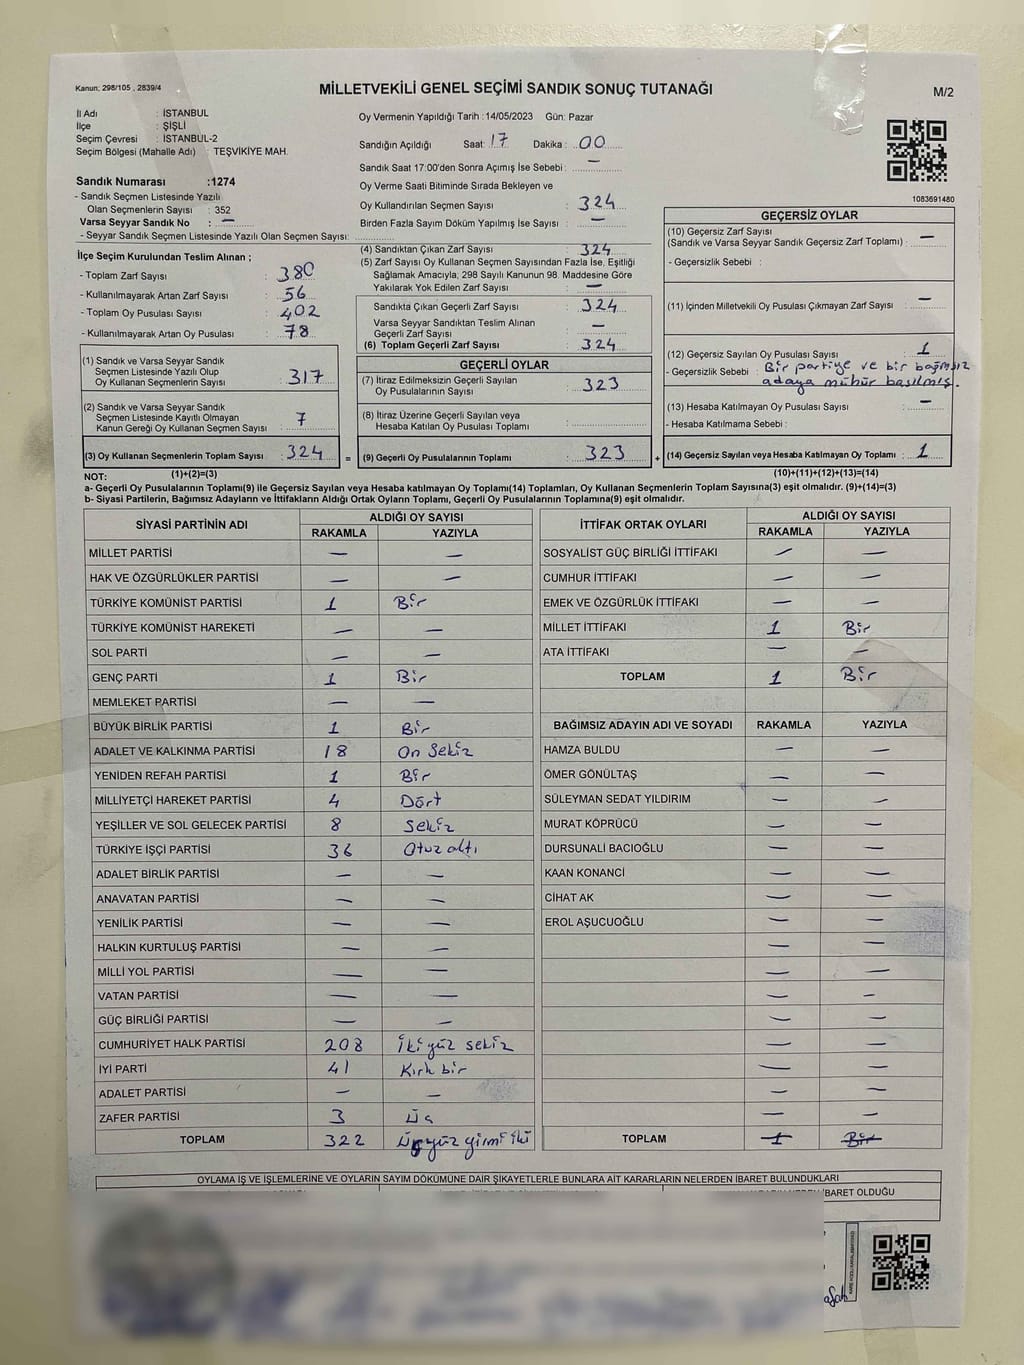 Kanun; 298/105 , 2839/4
MİLLETVEKİLİ GENEL SEÇİMİ SANDIK SONUÇ TUTANAĞI
M/2
İl Adı : İSTANBUL
İlçe : ŞİŞLİ
Seçim Çevresi : İSTANBUL-2
Seçim Bölgesi (Mahalle Adı) : TEŞVİKİYE MAH.
Sandık Numarası :1274
- Sandık Seçmen Listesinde Yazılı
Olan Seçmenlerin Sayısı : 352
Varsa Seyyar Sandık No : —
- Seyyar Sandık Seçmen Listesinde Yazılı Olan Seçmen Sayısı:
Oy Vermenin Yapıldığı Tarih :14/05/2023 Gün: Pazar
Sandığın Açıldığı Saat: 17 Dakika: 00
Sandık Saat 17:00'den Sonra Açımış İse Sebebi : —
Oy Verme Saati Bitiminde Sırada Bekleyen ve
Oy Kullandırılan Seçmen Sayısı : 324
Birden Fazla Sayım Döküm Yapılmış İse Sayısı : —
1083691480
İlçe Seçim Kurulundan Teslim Alınan ;
- Toplam Zarf Sayısı : 380
- Kullanılmayarak Artan Zarf Sayısı : 56
- Toplam Oy Pusulası Sayısı : 402
- Kullanılmayarak Artan Oy Pusulası : 78
(1) Sandık ve Varsa Seyyar Sandık
Seçmen Listesinde Yazılı Olup
Oy Kullanan Seçmenlerin Sayısı : 317
(2) Sandık ve Varsa Seyyar Sandık
Seçmen Listesinde Kayıtlı Olmayan
Kanun Gereği Oy Kullanan Seçmen Sayısı : 7
(3) Oy Kullanan Seçmenlerin Toplam Sayısı : 324
(1)+(2)=(3)
(4) Sandıktan Çıkan Zarf Sayısı : 324
(5) Zarf Sayısı Oy Kullanan Seçmen Sayısından Fazla İse, Eşitliği
Sağlamak Amacıyla; 298 Sayılı Kanunun 98. Maddesine Göre
Yakılarak Yok Edilen Zarf Sayısı : —
Sandıkta Çıkan Geçerli Zarf Sayısı : 324
Varsa Seyyar Sandıktan Teslim Alınan
Geçerli Zarf Sayısı : —
(6) Toplam Geçerli Zarf Sayısı : 324
GEÇERLİ OYLAR
(7) İtiraz Edilmeksizin Geçerli Sayılan
Oy Pusulalarının Sayısı : 323
(8) İtiraz Üzerine Geçerli Sayılan veya
Hesaba Katılan Oy Pusulası Toplamı :
= (9) Geçerli Oy Pusulalarının Toplamı : 323 +
GEÇERSİZ OYLAR
(10) Geçersiz Zarf Sayısı
(Sandık ve Varsa Seyyar Sandık Geçersiz Zarf Toplamı) : —
- Geçersizlik Sebebi :
(11) İçinden Milletvekili Oy Pusulası Çıkmayan Zarf Sayısı : —
(12) Geçersiz Sayılan Oy Pusulası Sayısı : 1
- Geçersizlik Sebebi : Bir partiye ve bir bağımsız
adaya mühür basılmış.
(13) Hesaba Katılmayan Oy Pusulası Sayısı : —
- Hesaba Katılmama Sebebi :
(14) Geçersiz Sayılan veya Hesaba Katılmayan Oy Toplamı : 1
(10)+(11)+(12)+(13)=(14)
NOT:
a- Geçerli Oy Pusulalarının Toplamı(9) ile Geçersiz Sayılan veya Hesaba katılmayan Oy Toplamı(14) Toplamları, Oy Kullanan Seçmenlerin Toplam Sayısına(3) eşit olmalıdır. (9)+(14)=(3)
b- Siyasi Partilerin, Bağımsız Adayların ve İttifakların Aldığı Ortak Oyların Toplamı, Geçerli Oy Pusulalarının Toplamına(9) eşit olmalıdır.
SİYASİ PARTİNİN ADI ALDIĞI OY SAYISI
RAKAMLA YAZIYLA
MİLLET PARTİSİ — —
HAK VE ÖZGÜRLÜKLER PARTİSİ — —
TÜRKİYE KOMÜNİST PARTİSİ 1 Bir
TÜRKİYE KOMÜNİST HAREKETİ — —
SOL PARTİ — —
GENÇ PARTİ 1 Bir
MEMLEKET PARTİSİ — —
BÜYÜK BİRLİK PARTİSİ 1 Bir
ADALET VE KALKINMA PARTİSİ 18 On sekiz
YENİDEN REFAH PARTİSİ 1 Bir
MİLLİYETÇİ HAREKET PARTİSİ 4 Dört
YEŞİLLER VE SOL GELECEK PARTİSİ 8 Sekiz
TÜRKİYE İŞÇİ PARTİSİ 36 Otuz altı
ADALET BİRLİK PARTİSİ — —
ANAVATAN PARTİSİ — —
YENİLİK PARTİSİ — —
HALKIN KURTULUŞ PARTİSİ — —
MİLLİ YOL PARTİSİ — —
VATAN PARTİSİ — —
GÜÇ BİRLİĞİ PARTİSİ — —
CUMHURİYET HALK PARTİSİ 208 İki yüz sekiz
İYİ PARTİ 41 Kırk bir
ADALET PARTİSİ — —
ZAFER PARTİSİ 3 Üç
TOPLAM 322 Üç yüz yirmi iki
İTTİFAK ORTAK OYLARI ALDIĞI OY SAYISI
RAKAMLA YAZIYLA
SOSYALİST GÜÇ BİRLİĞİ İTTİFAKI — —
CUMHUR İTTİFAKI — —
EMEK VE ÖZGÜRLÜK İTTİFAKI — —
MİLLET İTTİFAKI 1 Bir
ATA İTTİFAKI — —
TOPLAM 1 Bir
BAĞIMSIZ ADAYIN ADI VE SOYADI RAKAMLA YAZIYLA
HAMZA BULDU — —
ÖMER GÖNÜLTAŞ — —
SÜLEYMAN SEDAT YILDIRIM — —
MURAT KÖPRÜCÜ — —
DURSUNALİ BACIOĞLU — —
KAAN KONANCİ — —
CİHAT AK — —
EROL AŞUCUOĞLU — —
TOPLAM 1 Bir
OYLAMA İŞ VE İŞLEMLERİNE VE OYLARIN SAYIM DÖKÜMÜNE DAİR ŞİKAYETLERLE BUNLARA AİT KARARLARIN NELERDEN İBARET BULUNDUKLARI
İBARET OLDUĞU